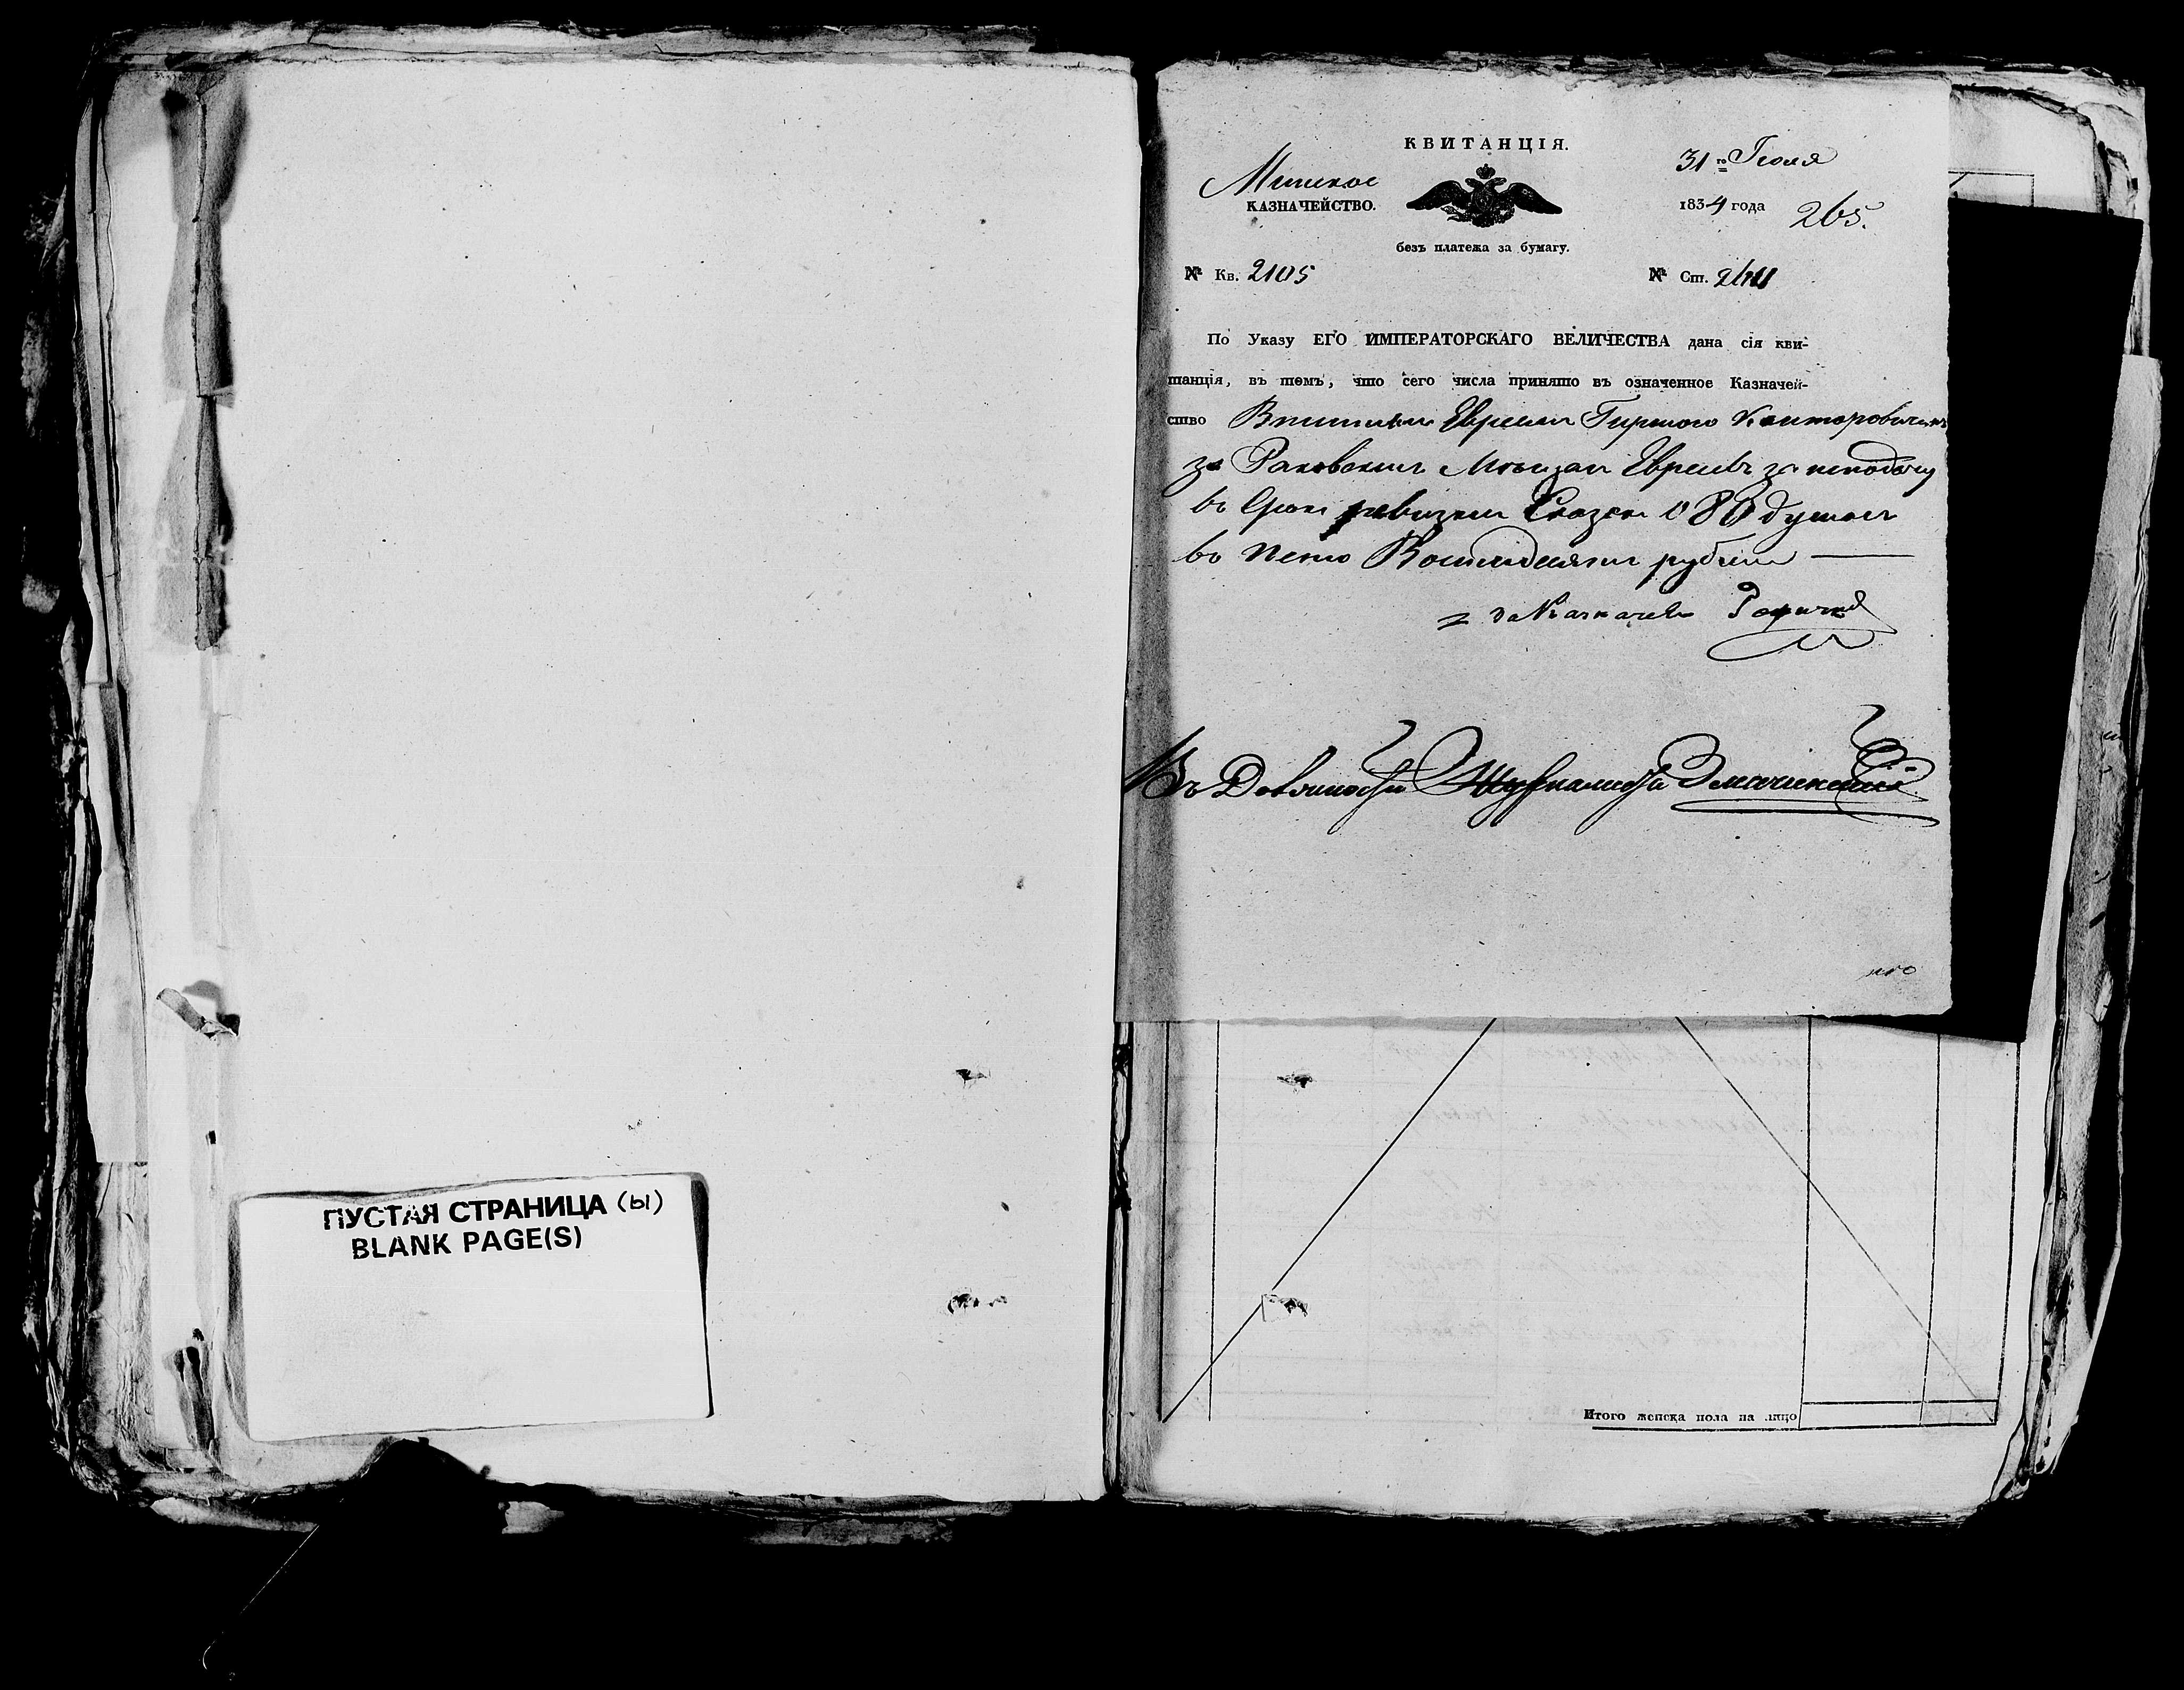 ПУСТАЯ СТРАНИЦА (ы)
BLANK PAGE(S)
КВИТАНЦІЯ.
Минское
КАЗНАЧЕЙСТВО.
31го Іюля
1834 года
265.
безъ платежа за бумагу.
№ Кв. 2105
№ Ст.
По Указу ЕГО ИМПЕРАТОРСКАГО ВЕЛИЧЕСТВА дана сія кви-
танція, въ томъ, что сего числа принято въ означенное Казначей-
ство Евреем Гиршою Канторовичемъ
за Раковских Мещан Евреевъ за неподачу
въ Срок ревизких Сказок о 80 душах
въ пеню Восемдесят рублей
Казначея
Въ Должности Журналиста
Итого женска пола на лицо